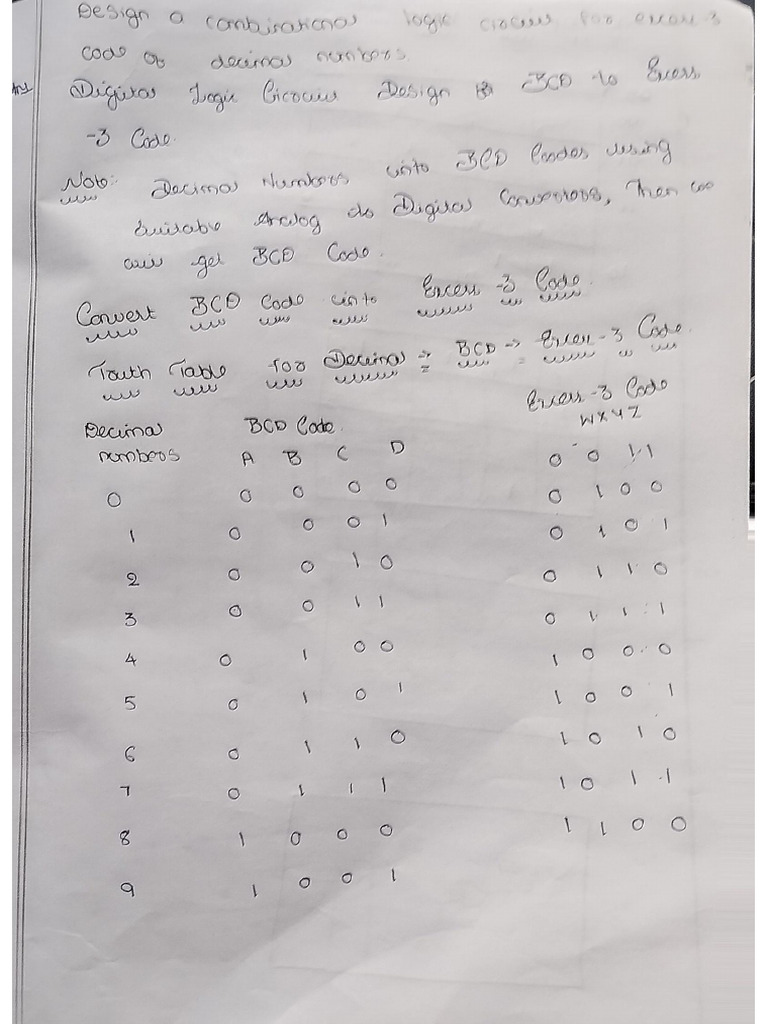 Design a combinational logic circuit for excess-3
code of decimal numbers.
Ans Digital Logic Circuit Design BCD to Excess
-3 Code.
Note: Decimal Numbers into BCD Codes using
Suitable Analog do Digital Convertors, Then we
can get BCD Code.
Convert BCD Code into Excess -3 Code.
Truth Table for Decimal → BCD → Excess -3 Code.
Decimal numbers BCD Code. Excess -3 Code
A B C D W X Y Z
0 0 0 0 0 0 0 1 1
1 0 0 0 1 0 1 0 0
2 0 0 1 0 0 1 0 1
3 0 0 1 1 0 1 1 0
4 0 1 0 0 0 1 1 1
5 0 1 0 1 1 0 0 0
6 0 1 1 0 1 0 0 1
7 0 1 1 1 1 0 1 0
8 1 0 0 0 1 0 1 1
9 1 0 0 1 1 1 0 0